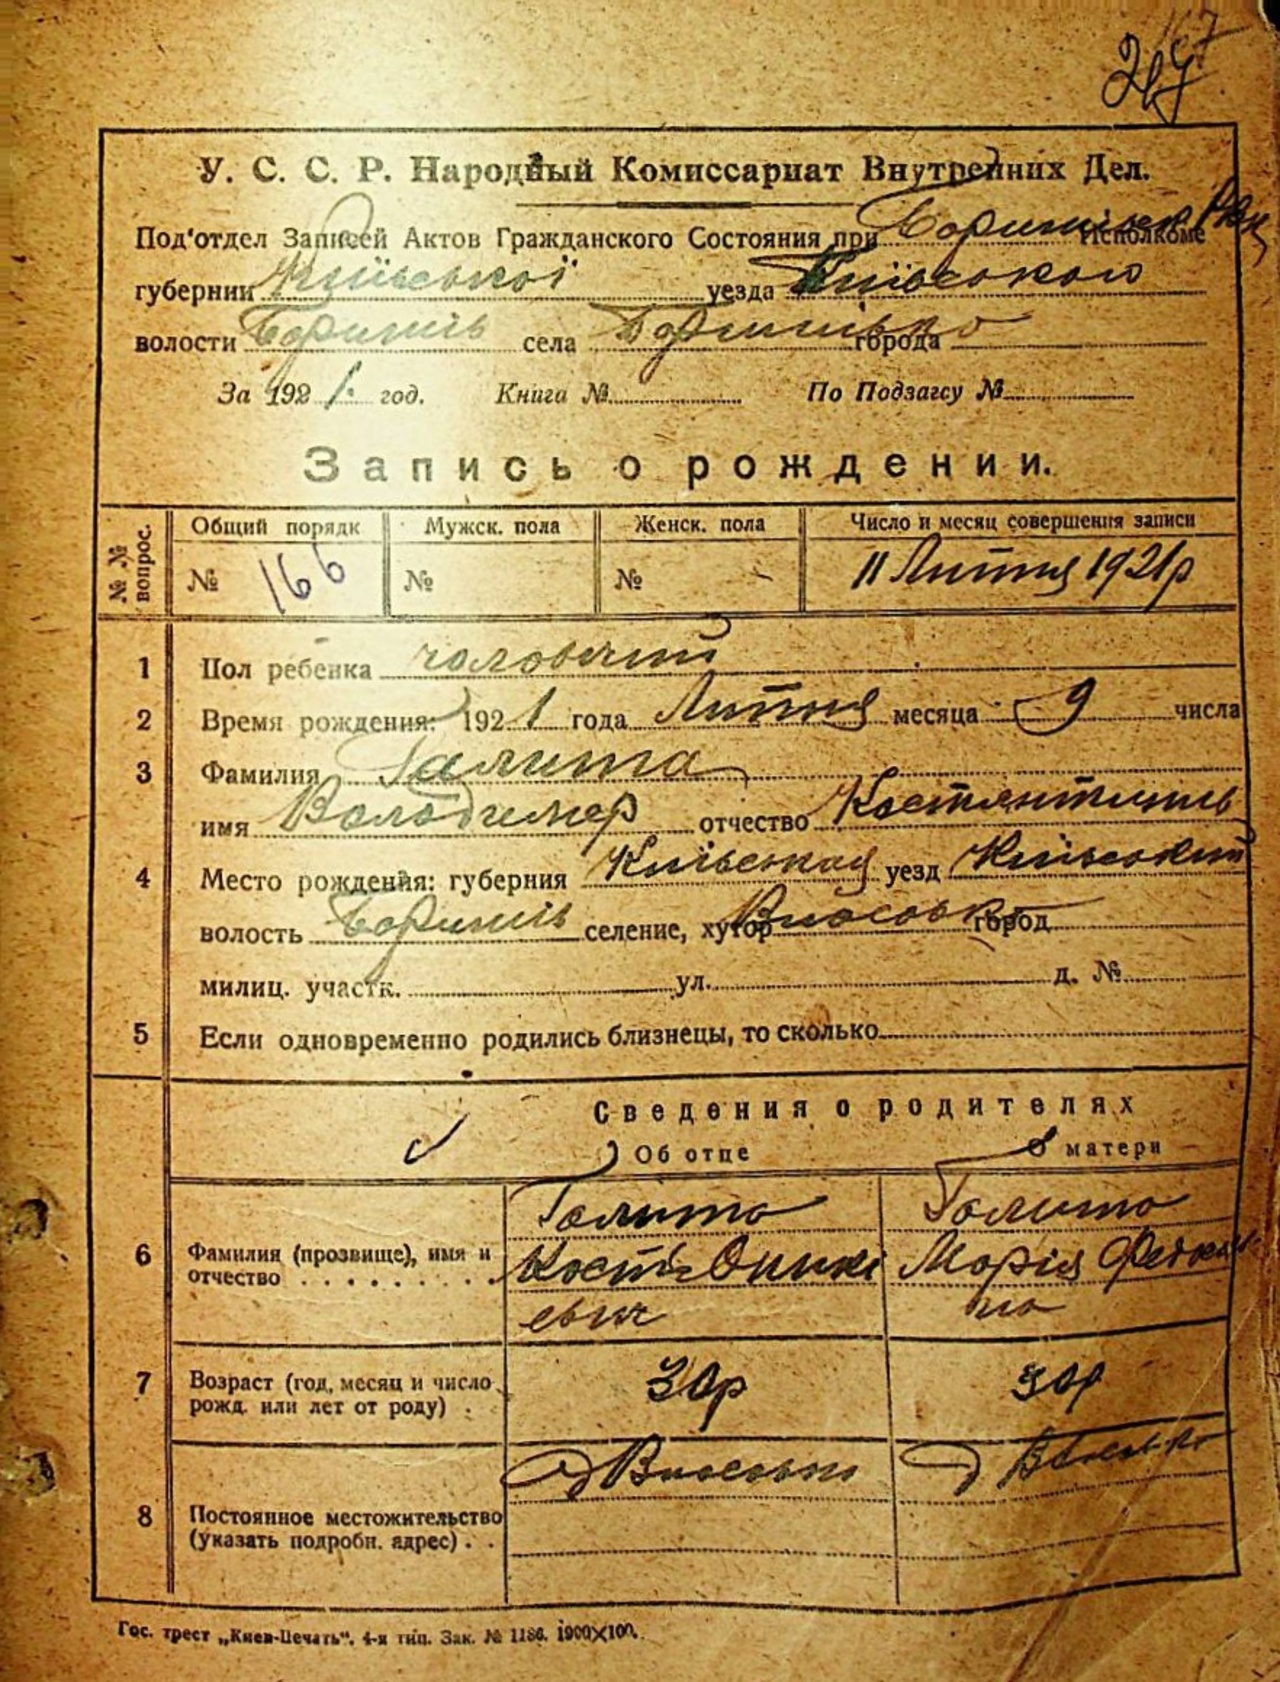 247
У. С. С. Р. Народный Комиссариат Внутренних Дел.
Под'отдел Записей Актов Гражданского Состояния при Исполкоме
губернии Київської уезда Київського
волости Бориспіль села города
За 1921. год. Книга № По Подзагсу №
Запись о рождении.
№ № вопрос. Общий порядк Мужск. пола Женск. пола Число и месяц совершения записи
№ 166 № № 11 Липня 1921р
1 Пол ребенка чоловічий
2 Время рождения: 1921 года Липня месяца 9 числа
3 Фамилия Галита
имя Володимер отчество
4 Место рождения: губерния Київська уезд Київський
волость Бориспіль селение, хутор город
милиц. участк. ул. д. №
5 Если одновременно родились близнецы, то сколько
Сведения о родителях
Об отце О матери
6 Фамилия (прозвище), имя и отчество Галита Галита
Кость Марія
7 Возраст (год, месяц и число рожд. или лет от роду) 30р 30р
8 Постоянное местожительство (указать подробн. адрес)
Гос. трест „Киев-Печать“. 4-я тип. Зак. № 1186. 1900×100.